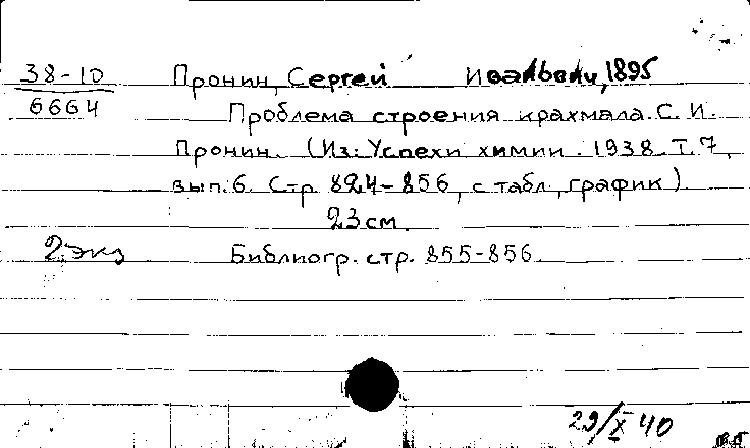 38-10 Пронин, Сергей 1895
6664 Проблема строения крахмала. С. И.
Пронин. (Из: Успехи химии. 1938. Т. 7,
вып. 6. Стр. 824-856, с табл., график).
23 см.
2 экз Библиогр. стр. 855-856.
29/X 40